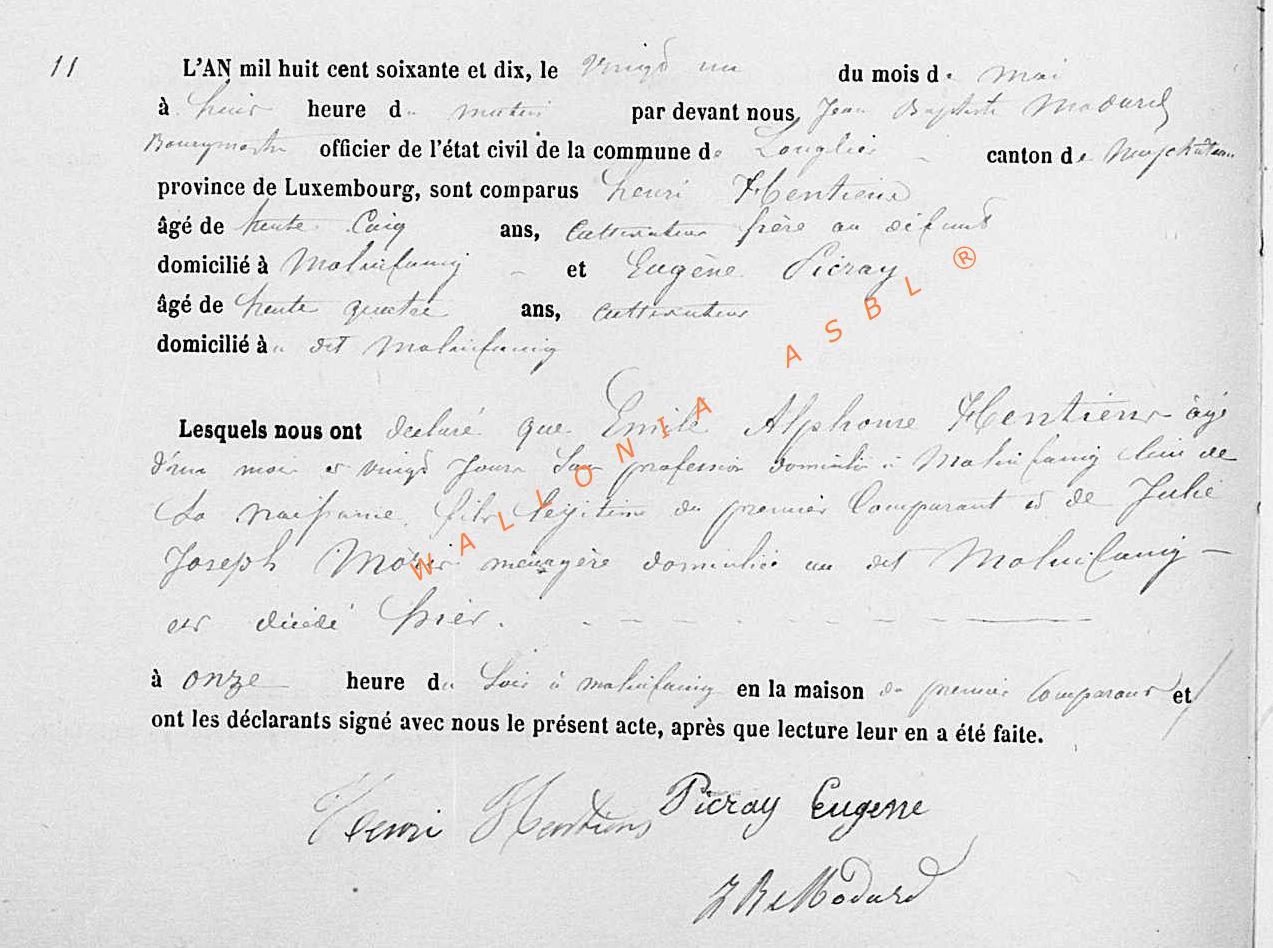 11
L'AN mil huit cent soixante et dix, le vingt un du mois de mai
à huit heure du matin par devant nous, Jean Baptiste Modard
Bourgmestre officier de l'état civil de la commune de Longlier canton de Neufchâteau
province de Luxembourg, sont comparus henri Hentiens
âgé de trente Cinq ans, Cultivateur frère au défunt
domicilié à Molinfaing et Eugène Picray
âgé de trente quatre ans, Cultivateur
domicilié à dit Molinfaing
Lesquels nous ont declaré que Emile Alphonse Hentiens âgé
d'un mois et vingt Jours San profession domicilié à Molinfaing lieu de
Sa naissance, fils légitime du premier Comparant et de Julie
Joseph ménagère domiciliée au dit Molinfaing
est décédé hier.
à onze heure du Soir à molinfaing en la maison du premier Comparant et
ont les déclarants signé avec nous le présent acte, après que lecture leur en a été faite.
Henri Hentiens Picray Eugene
J B Modard
WALLONIA ASBL ®